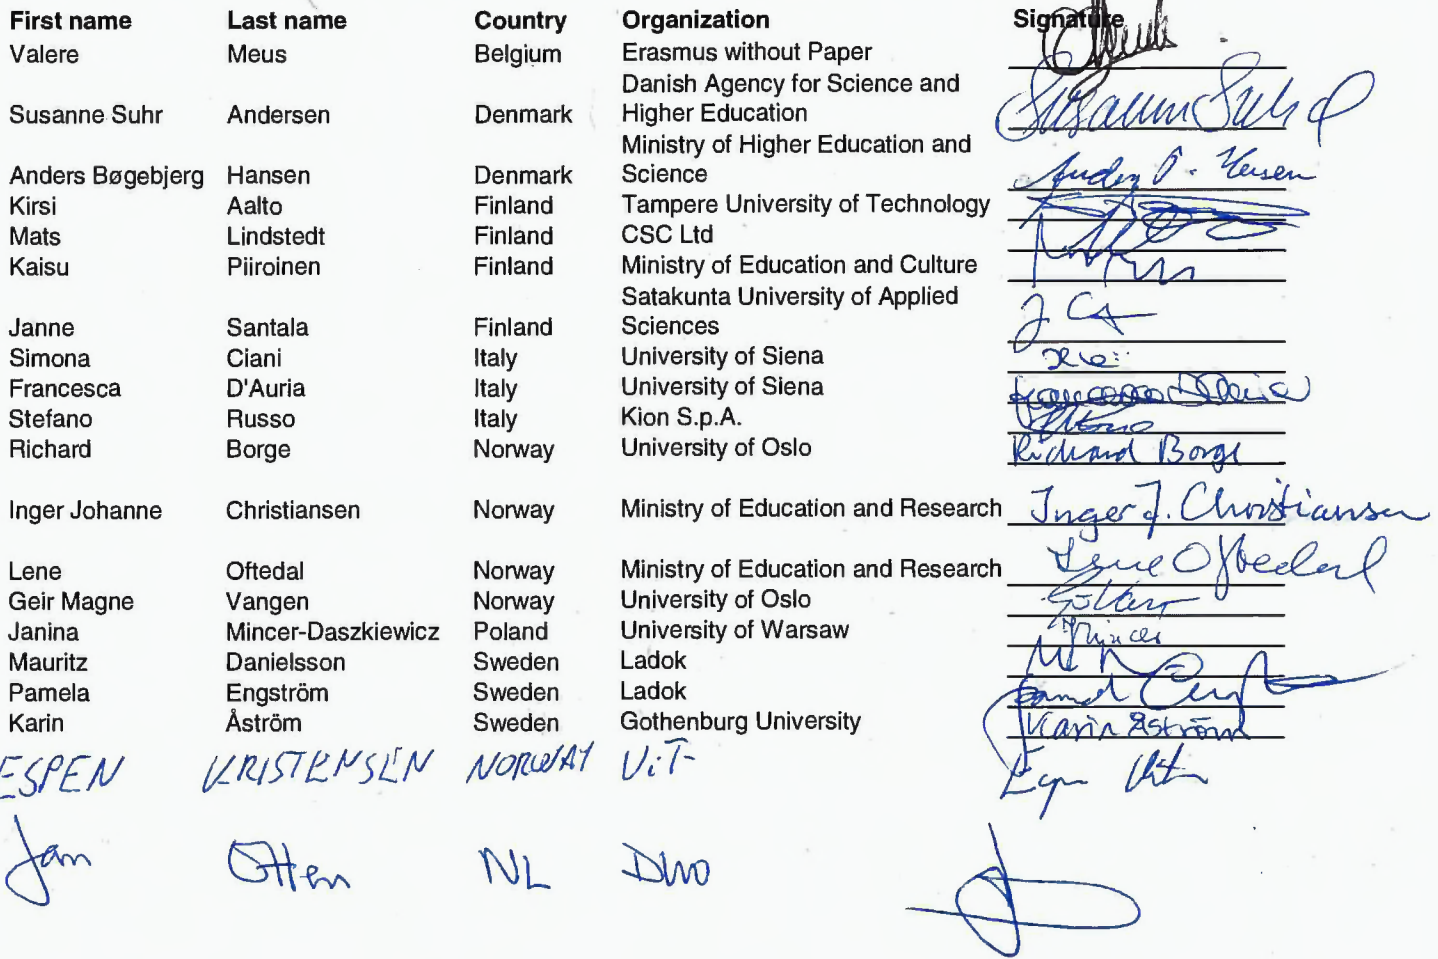 First name Last name Country Organization Signature
Valere Meus Belgium Erasmus without Paper
Danish Agency for Science and
Susanne Suhr Andersen Denmark Higher Education Susanne Suhr
Ministry of Higher Education and
Anders Bøgebjerg Hansen Denmark Science
Kirsi Aalto Finland Tampere University of Technology
Mats Lindstedt Finland CSC Ltd
Kaisu Piiroinen Finland Ministry of Education and Culture
Satakunta University of Applied
Janne Santala Finland Sciences
Simona Ciani Italy University of Siena
Francesca D'Auria Italy University of Siena Francesca D'Auria
Stefano Russo Italy Kion S.p.A.
Richard Borge Norway University of Oslo Richard Borge
Inger Johanne Christiansen Norway Ministry of Education and Research Inger J. Christiansen
Lene Oftedal Norway Ministry of Education and Research Lene Oftedal
Geir Magne Vangen Norway University of Oslo
Janina Mincer-Daszkiewicz Poland University of Warsaw Mincer
Mauritz Danielsson Sweden Ladok
Pamela Engström Sweden Ladok
Karin Åström Sweden Gothenburg University Karin Åström
ESPEN KRISTENSEN NORWAY UiT
Jan Otten NL DUO